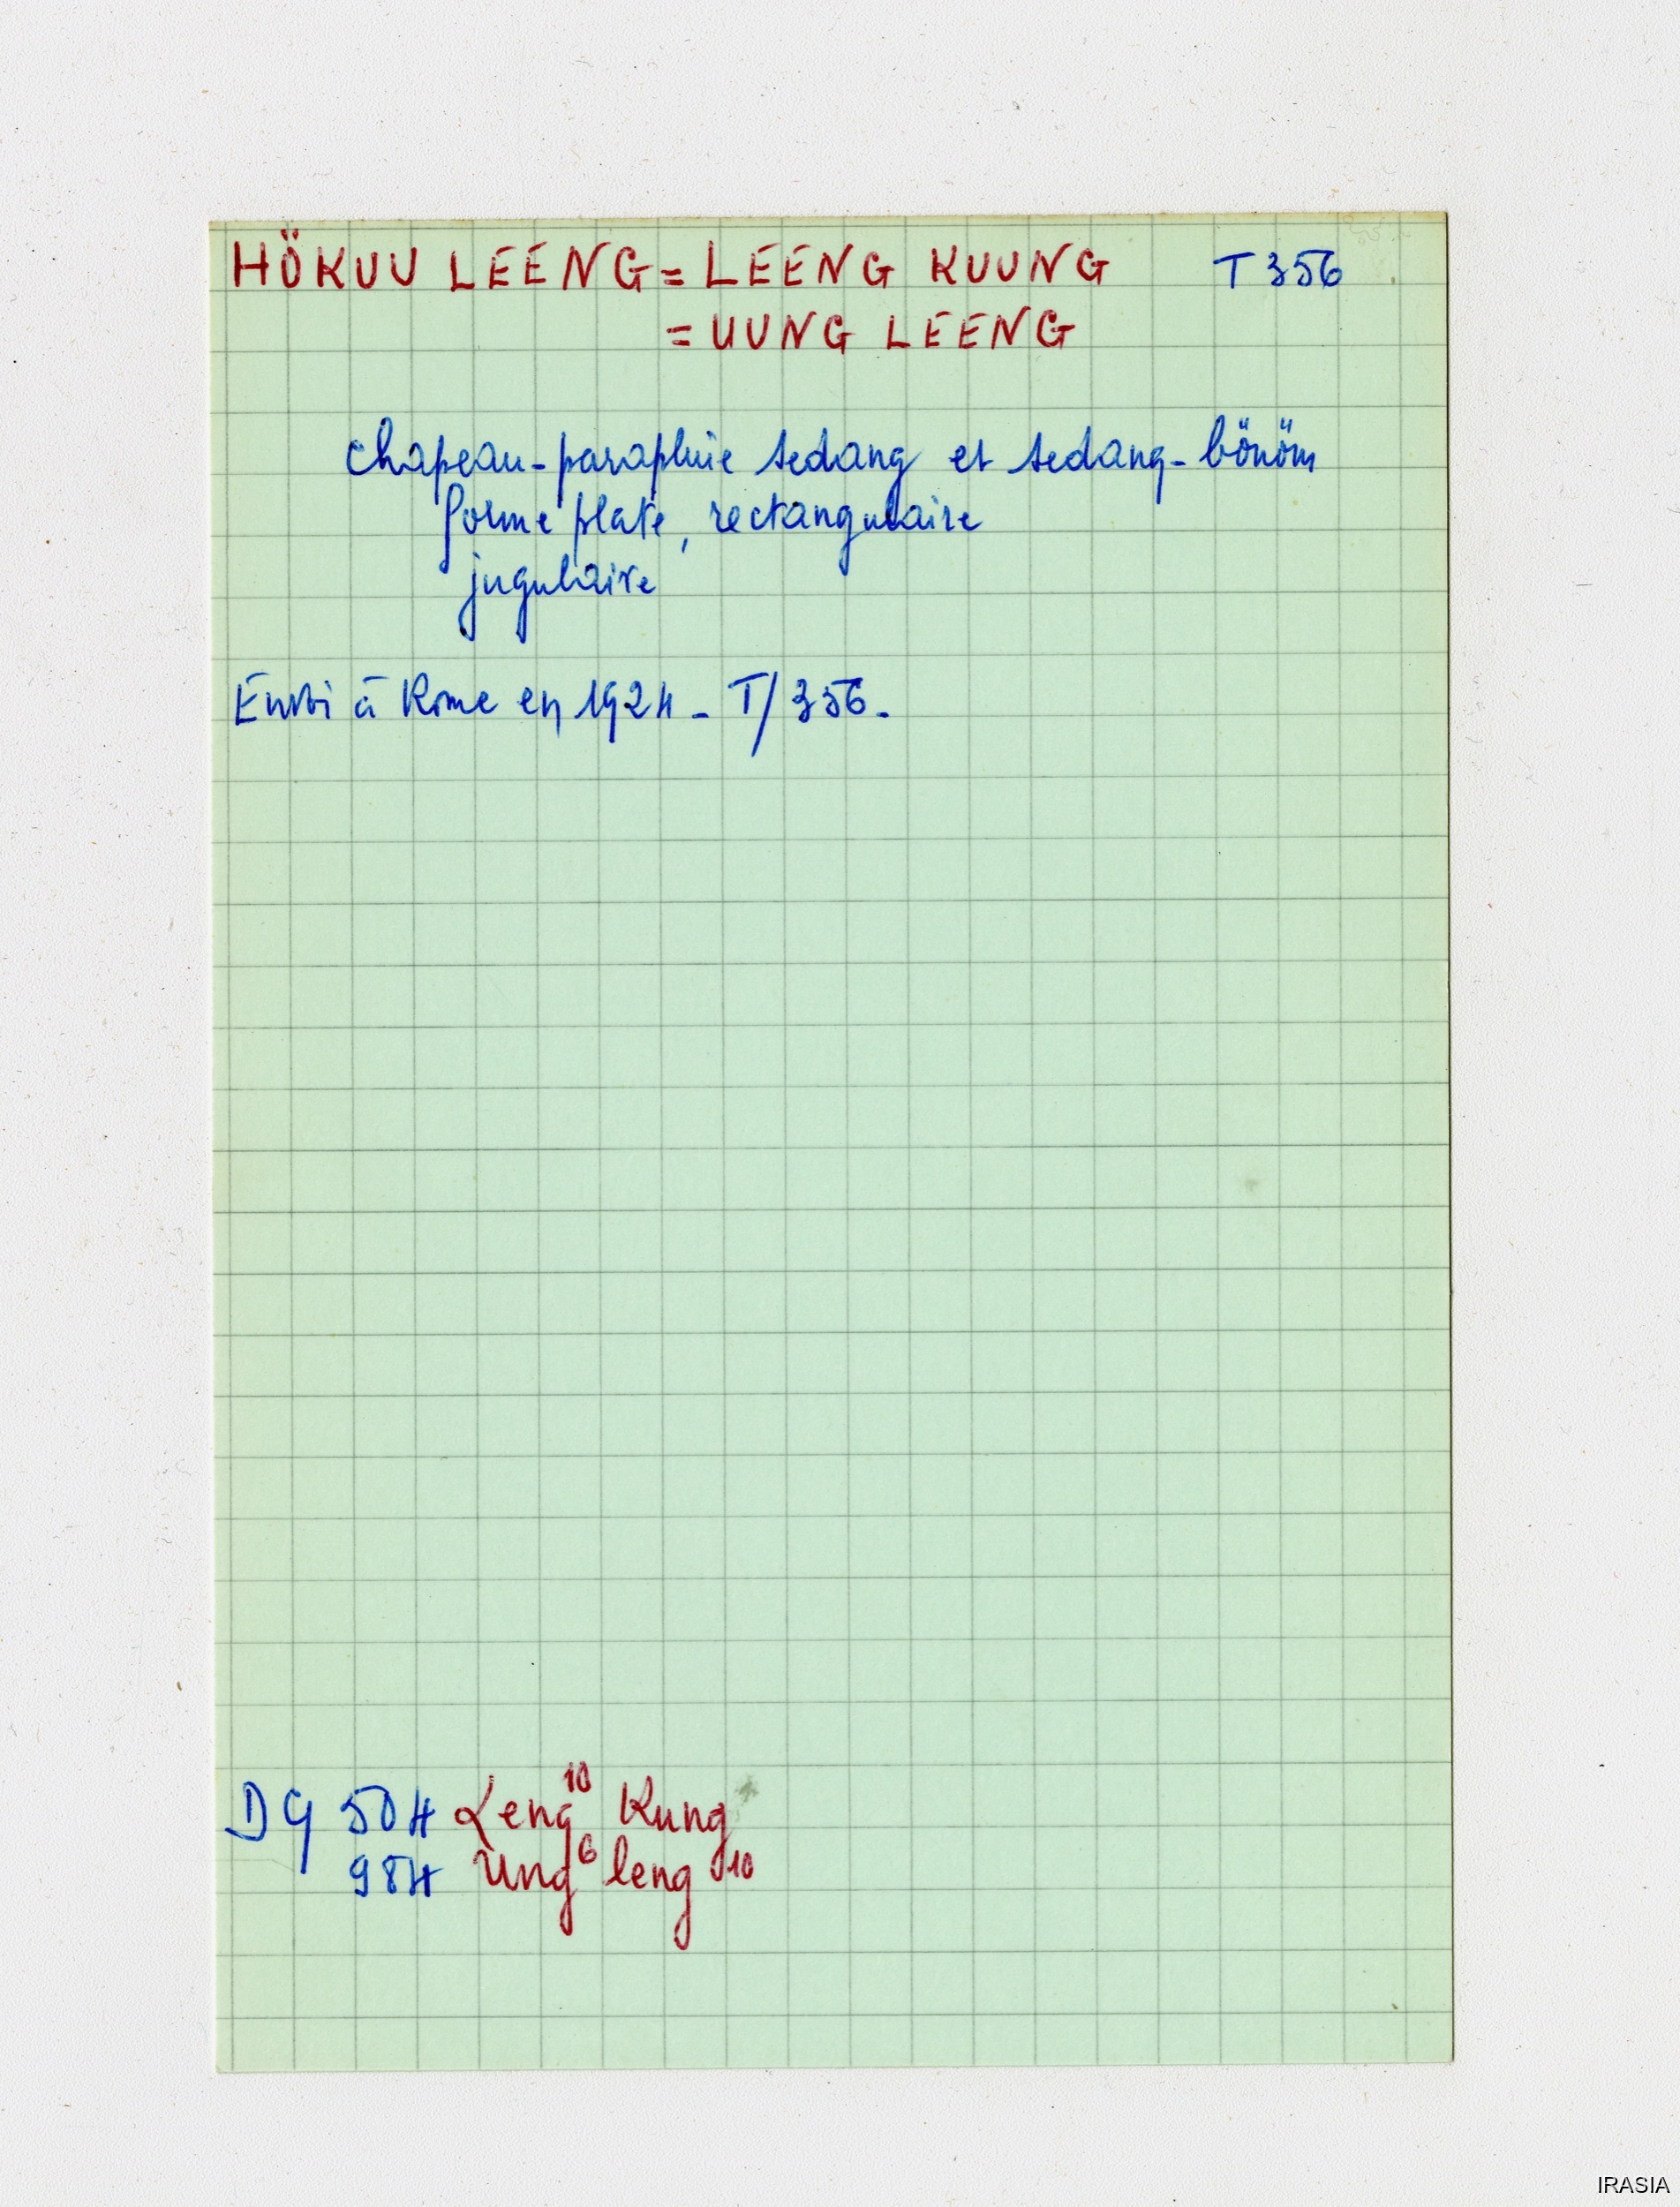 HÖKUU LEENG = LEENG KUUNG T 356
= UUNG LEENG
chapeau-parapluie sedang et sedang-bönöm
forme plate, rectangulaire
jugulaire
Envoi à Rome en 1924 - T/356.
DG 504 Leng¹⁰ Kung
984 Ung⁶ leng ¹⁰
IRASIA